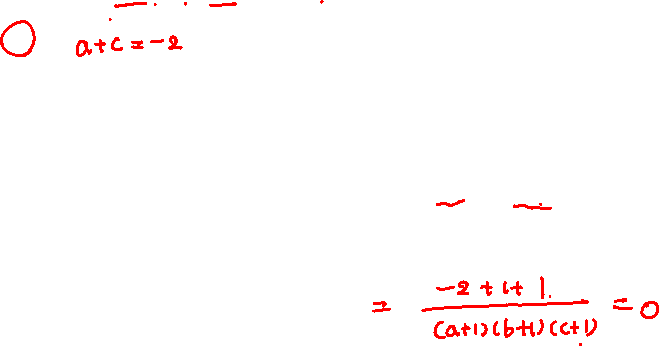 a+c=-2
= \frac{-2+1+1}{(a+1)(b+1)(c+1)} = 0